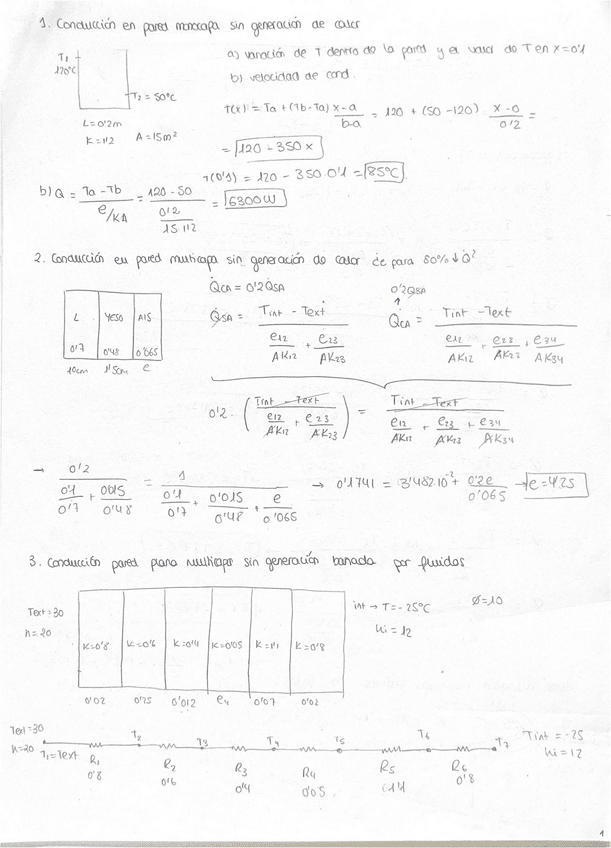 1. Conducción en pared monocapa sin generación de calor
T1
120°C
T2 = 50°C
L=0'2m
K=1'2 A=15m²
a) variación de T dentro de la pared y el valor de T en x=0'1
b) velocidad de cond.
T(x) = Ta + (Tb-Ta) x-a / b-a = 120 + (50-120) x-0 / 0'2 =
= 120 - 350x
T(0'1) = 120 - 350·0'1 = 85°C.
b) Q = Ta-Tb / e/KA = 120-50 / 0'2 / 15·1'2 = 6300W
2. Conducción en pared multicapa sin generación de calor ¿e para 80% ↓ Q?
Q̇CA = 0'2 Q̇SA
L YESO AIS
0'7 0'48 0'065
10cm 1'5cm e
Q̇SA = Tint - Text / e12 / AK12 + e23 / AK23
0'2 Q̇SA
Q̇CA = Tint - Text / e12 / AK12 + e23 / AK23 + e34 / AK34
0'2 · ( Tint - Text / e12 / AK12 + e23 / AK23 ) = Tint - Text / e12 / AK12 + e23 / AK23 + e34 / AK34
→ 0'2 / 0'1 / 0'7 + 0'015 / 0'48 = 1 / 0'1 / 0'7 + 0'015 / 0'48 + e / 0'065 → 0'1741 = 3'482·10⁻² + 0'2e / 0'065 →
3. Conducción pared plana multicapa sin generación banada por fluidos
Text=30
h=20
K=0'8 K=0'6 K=0'4 K=0'05 K=1'1 K=0'8
0'02 0'75 0'012 e4 0'07 0'02
int → T=-25°C
hi = 12
Ø=10
Text=30
h=20
T1=Text T2 T3 T4 T5 T6 T7
R1 R2 R3 R4 R5 R6
0'8 0'6 0'4 0'05 0'8
Tint = -25
hi=12
1